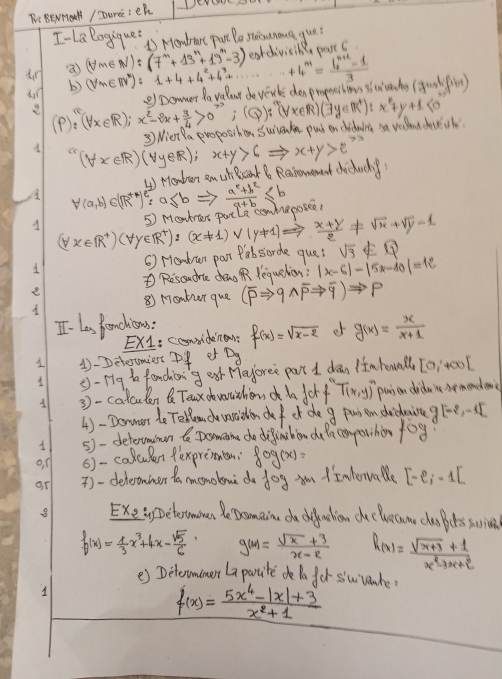 Pr: BENMOUH / Durée: 2h
I - La logique:
1) Montrer par la récurrence que:
a) (∀n∈ℕ): (7ⁿ + 13ⁿ + 19ⁿ - 3) est divisible par 6
b) (∀n∈ℕ*): 1 + 4 + 4² + 4³ + ...... + 4ⁿ = (4ⁿ⁺¹ - 1)/3
2) Donner la valeur de vérité des propositions suivantes (justifier)
(P): "(∀x∈ℝ); x² - 2x + 3/4 > 0" ; (Q): "(∀x∈ℝ)(∃y∈ℝ): x² + y + 1 < 0"
3) Nier la proposition suivante puis en déduire sa valeur de vérité.
"(∀x∈ℝ)(∀y∈ℝ); x+y > 6 ⇒ x+y > 2"
4) Montrer en utilisant le Raisonnement déductif:
∀(a,b)∈(ℝ⁺*)²: a ≤ b ⇒ (a²+b²)/(a+b) ≤ b
5) Montrer par la contraposée:
(∀x∈ℝ⁺)(∀y∈ℝ⁺): (x≠1) ∨ (y≠1) ⇒ (x+y)/2 ≠ √x + √y - 1
6) Montrer par l'absurde que: √3 ∉ ℚ
7) Résoudre dans ℝ l'équation: |x-6| - |5x-10| = 12
8) Montrer que (p̄ ⇒ q ∧ p̄ ⇒ q̄) ⇒ p
II - Les fonctions:
EX1: considérons: f(x) = √(x-2) et g(x) = x/(x+1)
1) - Déterminer Df et Dg
2) - Mq la fonction g est Majorée par 1 dans l'Intervalle [0; +∞[
3) - calculer le Taux de variations de la fct f "T(x,y)" puis en déduire sa monotonie
4) - Donner le Tableau de variation de f et de g puis en déduire g([-2; -1[)
5) - determiner le Domaine de définition de la composition fog.
6) - calculer l'expression: fog(x) =
7) - determiner la monotonie de fog sur l'Intervalle [-2; -1[
EX2: 1) Déterminer le Domaine de définition de chacune des fcts suivantes
f(x) = 1/3 x³ + 4x - √5/6 . g(x) = (√x + 3)/(x - 2) h(x) = (√(x+3) + 1)/(x² - 3x + 2)
2) Déterminer La parité de la fct suivante:
f(x) = (5x⁴ - |x| + 3)/(x² + 1)